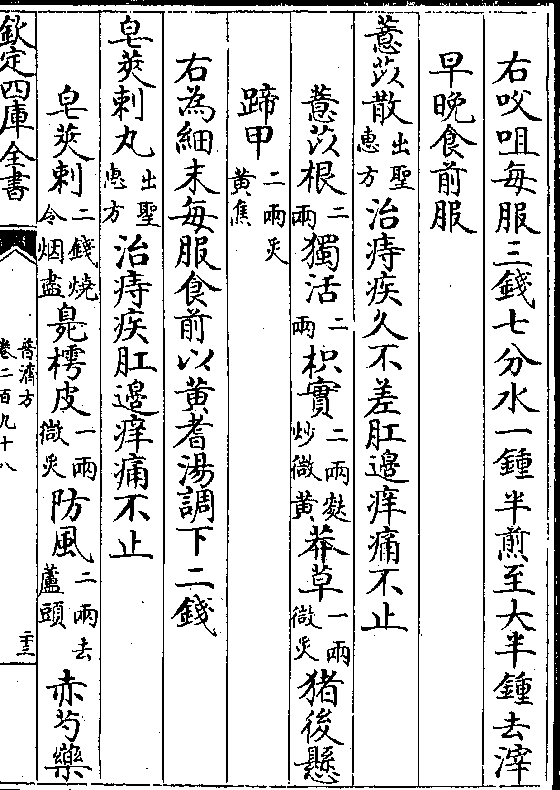 右㕮咀每服三錢七分水一鍾半煎至大半鍾去滓
早晚食前服
薏苡散出聖惠方治痔疾久不差肛邊痒痛不止
薏苡根二兩獨活二兩枳實二兩麩炒微黄莽草一兩微炙猪後懸
蹄甲二兩炙黄焦
右為細末每服食前以黄耆湯調下二錢
皂莢刺丸出聖惠方治痔疾肛邊痒痛不止
皂莢刺二錢燒令烟盡臭樗皮一兩微炙防風二兩去蘆頭赤芍藥
欽定四庫全書
普濟方
卷二百九十八